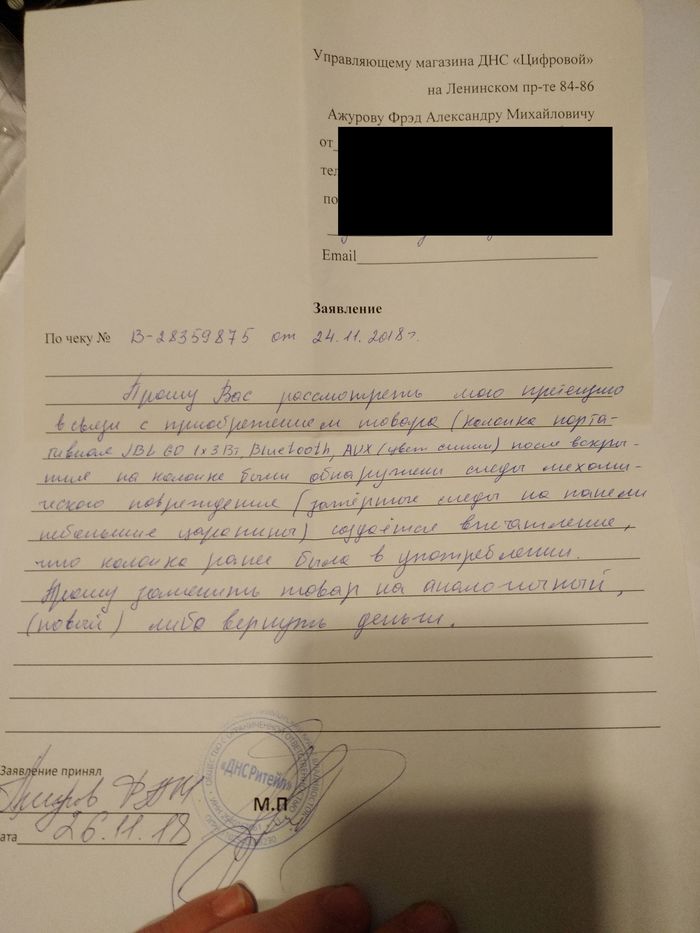 Управляющему магазина ДНС «Цифровой»
на Ленинском пр-те 84-86
Ажурову Фрэд Александру Михайловичу
от
тел
по
Email
Заявление
По чеку № В-28359875 от 24.11.2018г.
Прошу Вас рассмотреть мою претензию
в связи с приобретением товара (колонка порта-
тивная JBL GO 1x3Вт, Bluetooth, AUX (цвет синий) после вскры-
тия на колонке были обнаружены следы механи-
ческого повреждения (затёртые следы на панели
небольшие царапины) создаётся впечатление,
что колонка ранее была в употреблении.
Прошу заменить товар на аналогичный,
(новый) либо вернуть деньги.
Заявление принял
М.П
ата 26.11.18
ОБЩЕСТВО С ОГРАНИЧЕННОЙ ОТВЕТСТВЕННОСТЬЮ
«ДНСРитейл»